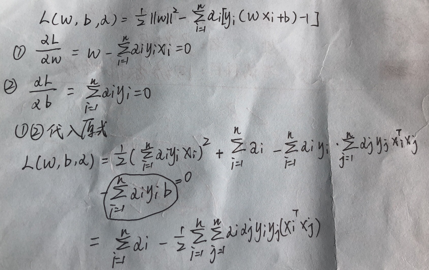 L(w,b,α) = 1/2 ||w||² - Σ_{i=1}^{n} αi[yi(wxi+b)-1]
① ∂L/∂w = w - Σ_{i=1}^{n} αiyixi = 0
② ∂L/∂b = Σ_{i=1}^{n} αiyi = 0
①②代入原式
L(w,b,α) = 1/2 (Σ_{i=1}^{n} αiyixi)² + Σ_{i=1}^{n} αi - Σ_{i=1}^{n} αiyi · Σ_{j=1}^{n} αjyj xiᵀxj
- Σ_{i=1}^{n} αiyib = 0
= Σ_{i=1}^{n} αi - 1/2 Σ_{i=1}^{n} Σ_{j=1}^{n} αiαjyiyj(xiᵀxj)